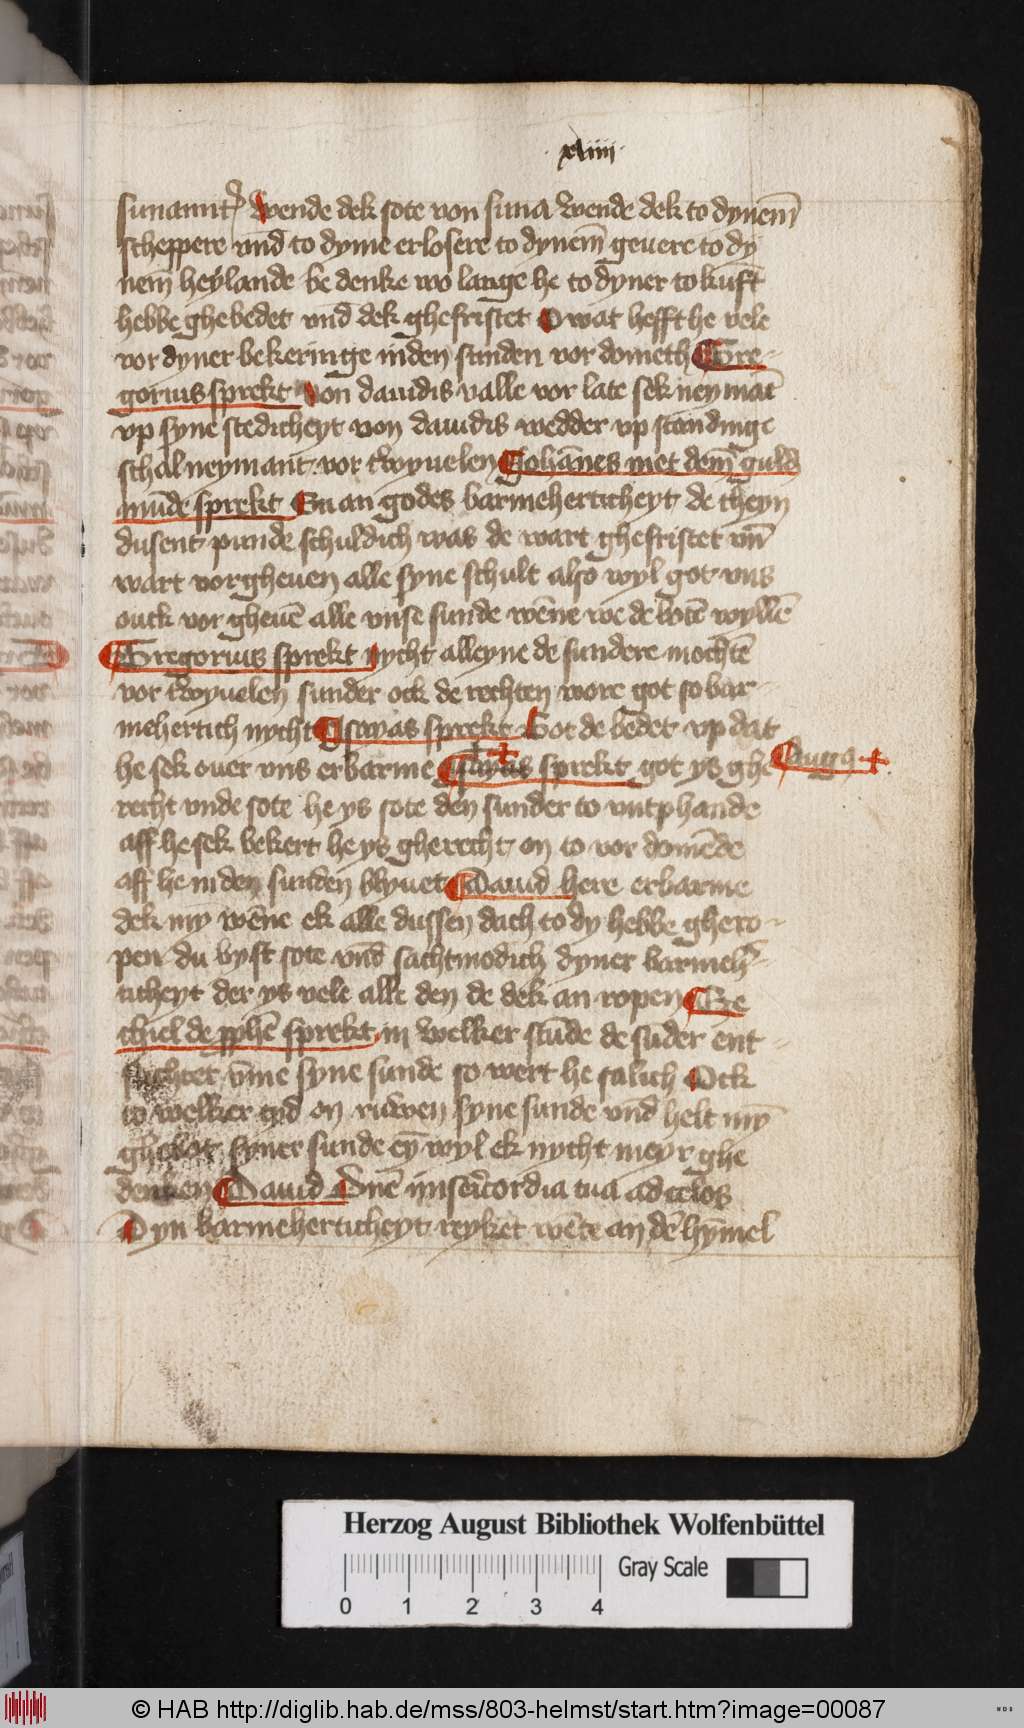 xliiii
sunamit᷑ wende dek sote von suna wende dek to dynem̄
scheppere vnd̄ to dyme erlosere to dynem̄ geuere to dy
nem̄ heylande be denke wo lange he to dyner tokūft
hebbe ghebedet vnd̄ dek ghefristet O wat hefft he vele
vor dyner bekeringe in den sunden vor dometh Gre-
gorius sprekt Von dauidis valle vor late sek neyman̄t
vp syne stedicheyt von dauidis wedder vp standinge
schal neymant vor twyuelen Johānes met dem̄ guldē
mūde sprekt En an godes barmeherticheyt de theyn
dusent punde schuldich was de wart ghefristet vn̄
wart vorgheuen alle syne schult also wyl got vns
ouck vor gheuē alle vnse sunde wēne we de botē wyllē
Gregorius sprekt nycht alleyne de sundere mochtē
vor twyuelen sunder ock de rechten wore got so bar-
mehertich nycht Isayas sprekt Got de bedet vp dat
he sek ouer vns erbarme Isayas sprekt got ys ghe
Augꝯ +
recht vnde sote he ys sote den sunder to vntphande
aff he sek bekert he ys gherecht on to vor domēde
aff he in den sunden blyuet Dauid here erbarme
dek my wēne ek alle dussen dach to dy hebbe ghero-
pen du byst sote vnd̄ sachtmodich dyner barmeh̄-
ticheyt der ys vele alle den de dek an ropen Eze
chiel de ꝓphē sprekt in welker stūde de sūder ent-
suchtet vm̄e syne sunde so wert he salich Ock
to welker tyd on ruwen syne sunde vnd helt my̅
ghebot syner sunde ey̅ wyl ek nycht meyr ghe
denken Dauid Dn̄e misericordia tua ad celos
Dyn barmeherticheyt reyket wēte an dē hȳmel
Herzog August Bibliothek Wolfenbüttel
Gray Scale
0 1 2 3 4
© HAB http://diglib.hab.de/mss/803-helmst/start.htm?image=00087